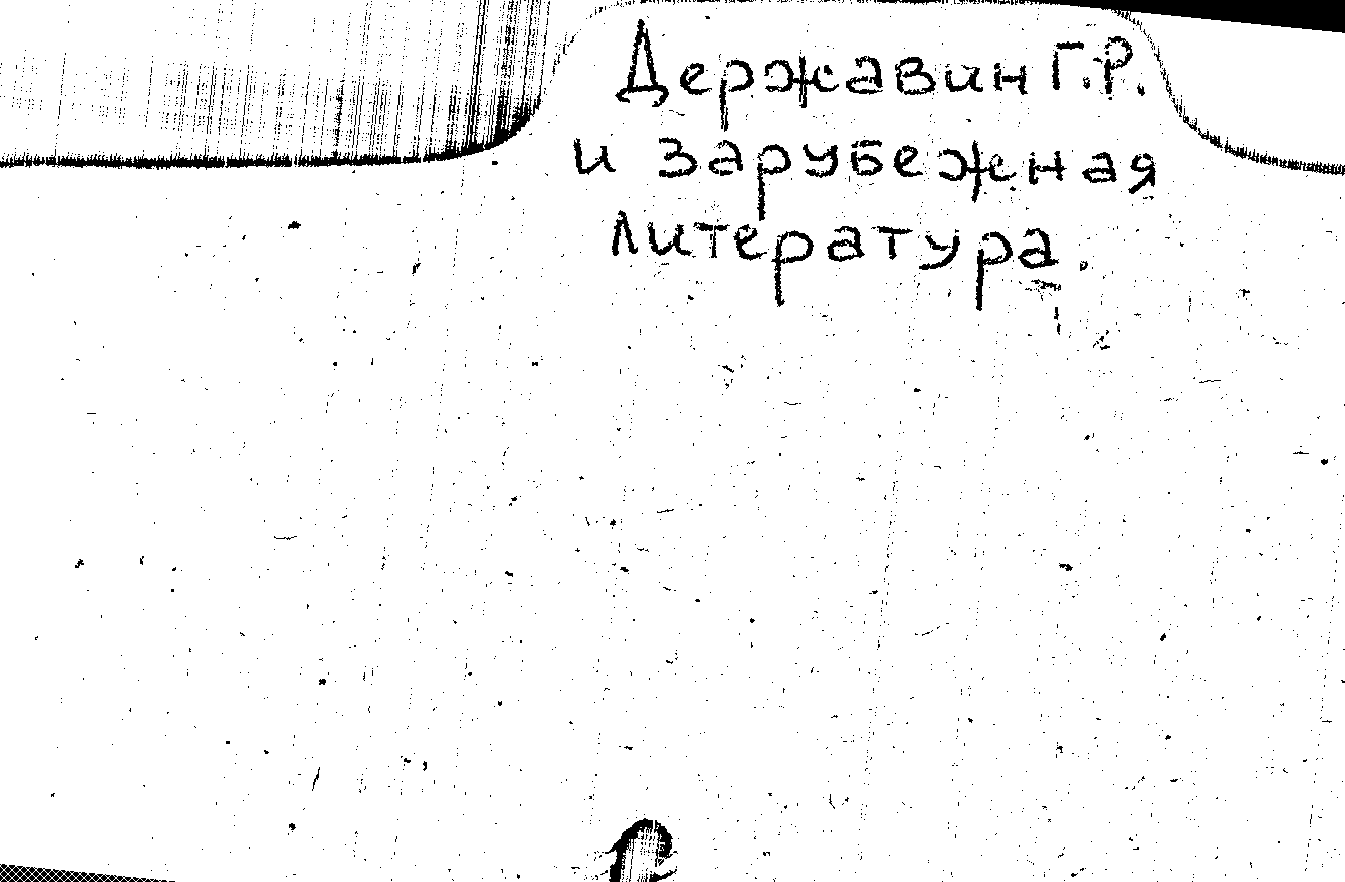 Державин Г.Р.
и зарубежная
литература.